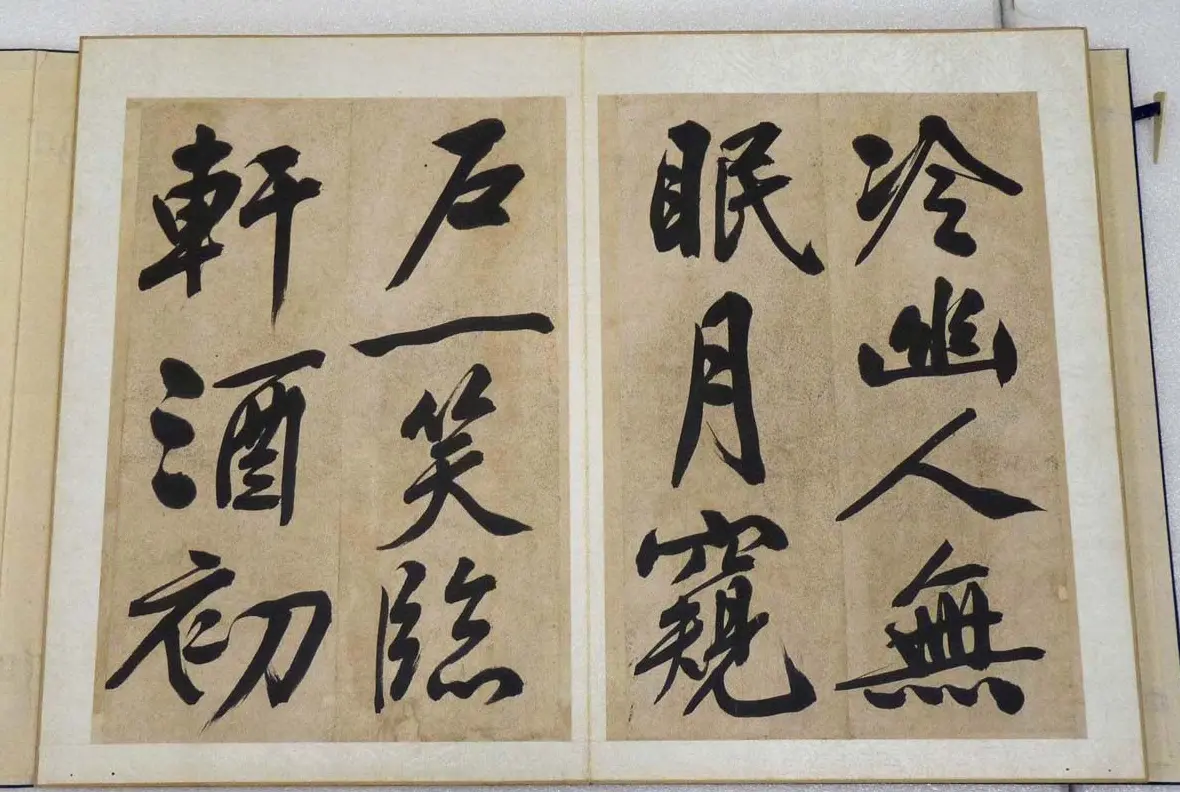 冷幽人無
眠月窺
戶一笑臨
軒酒初